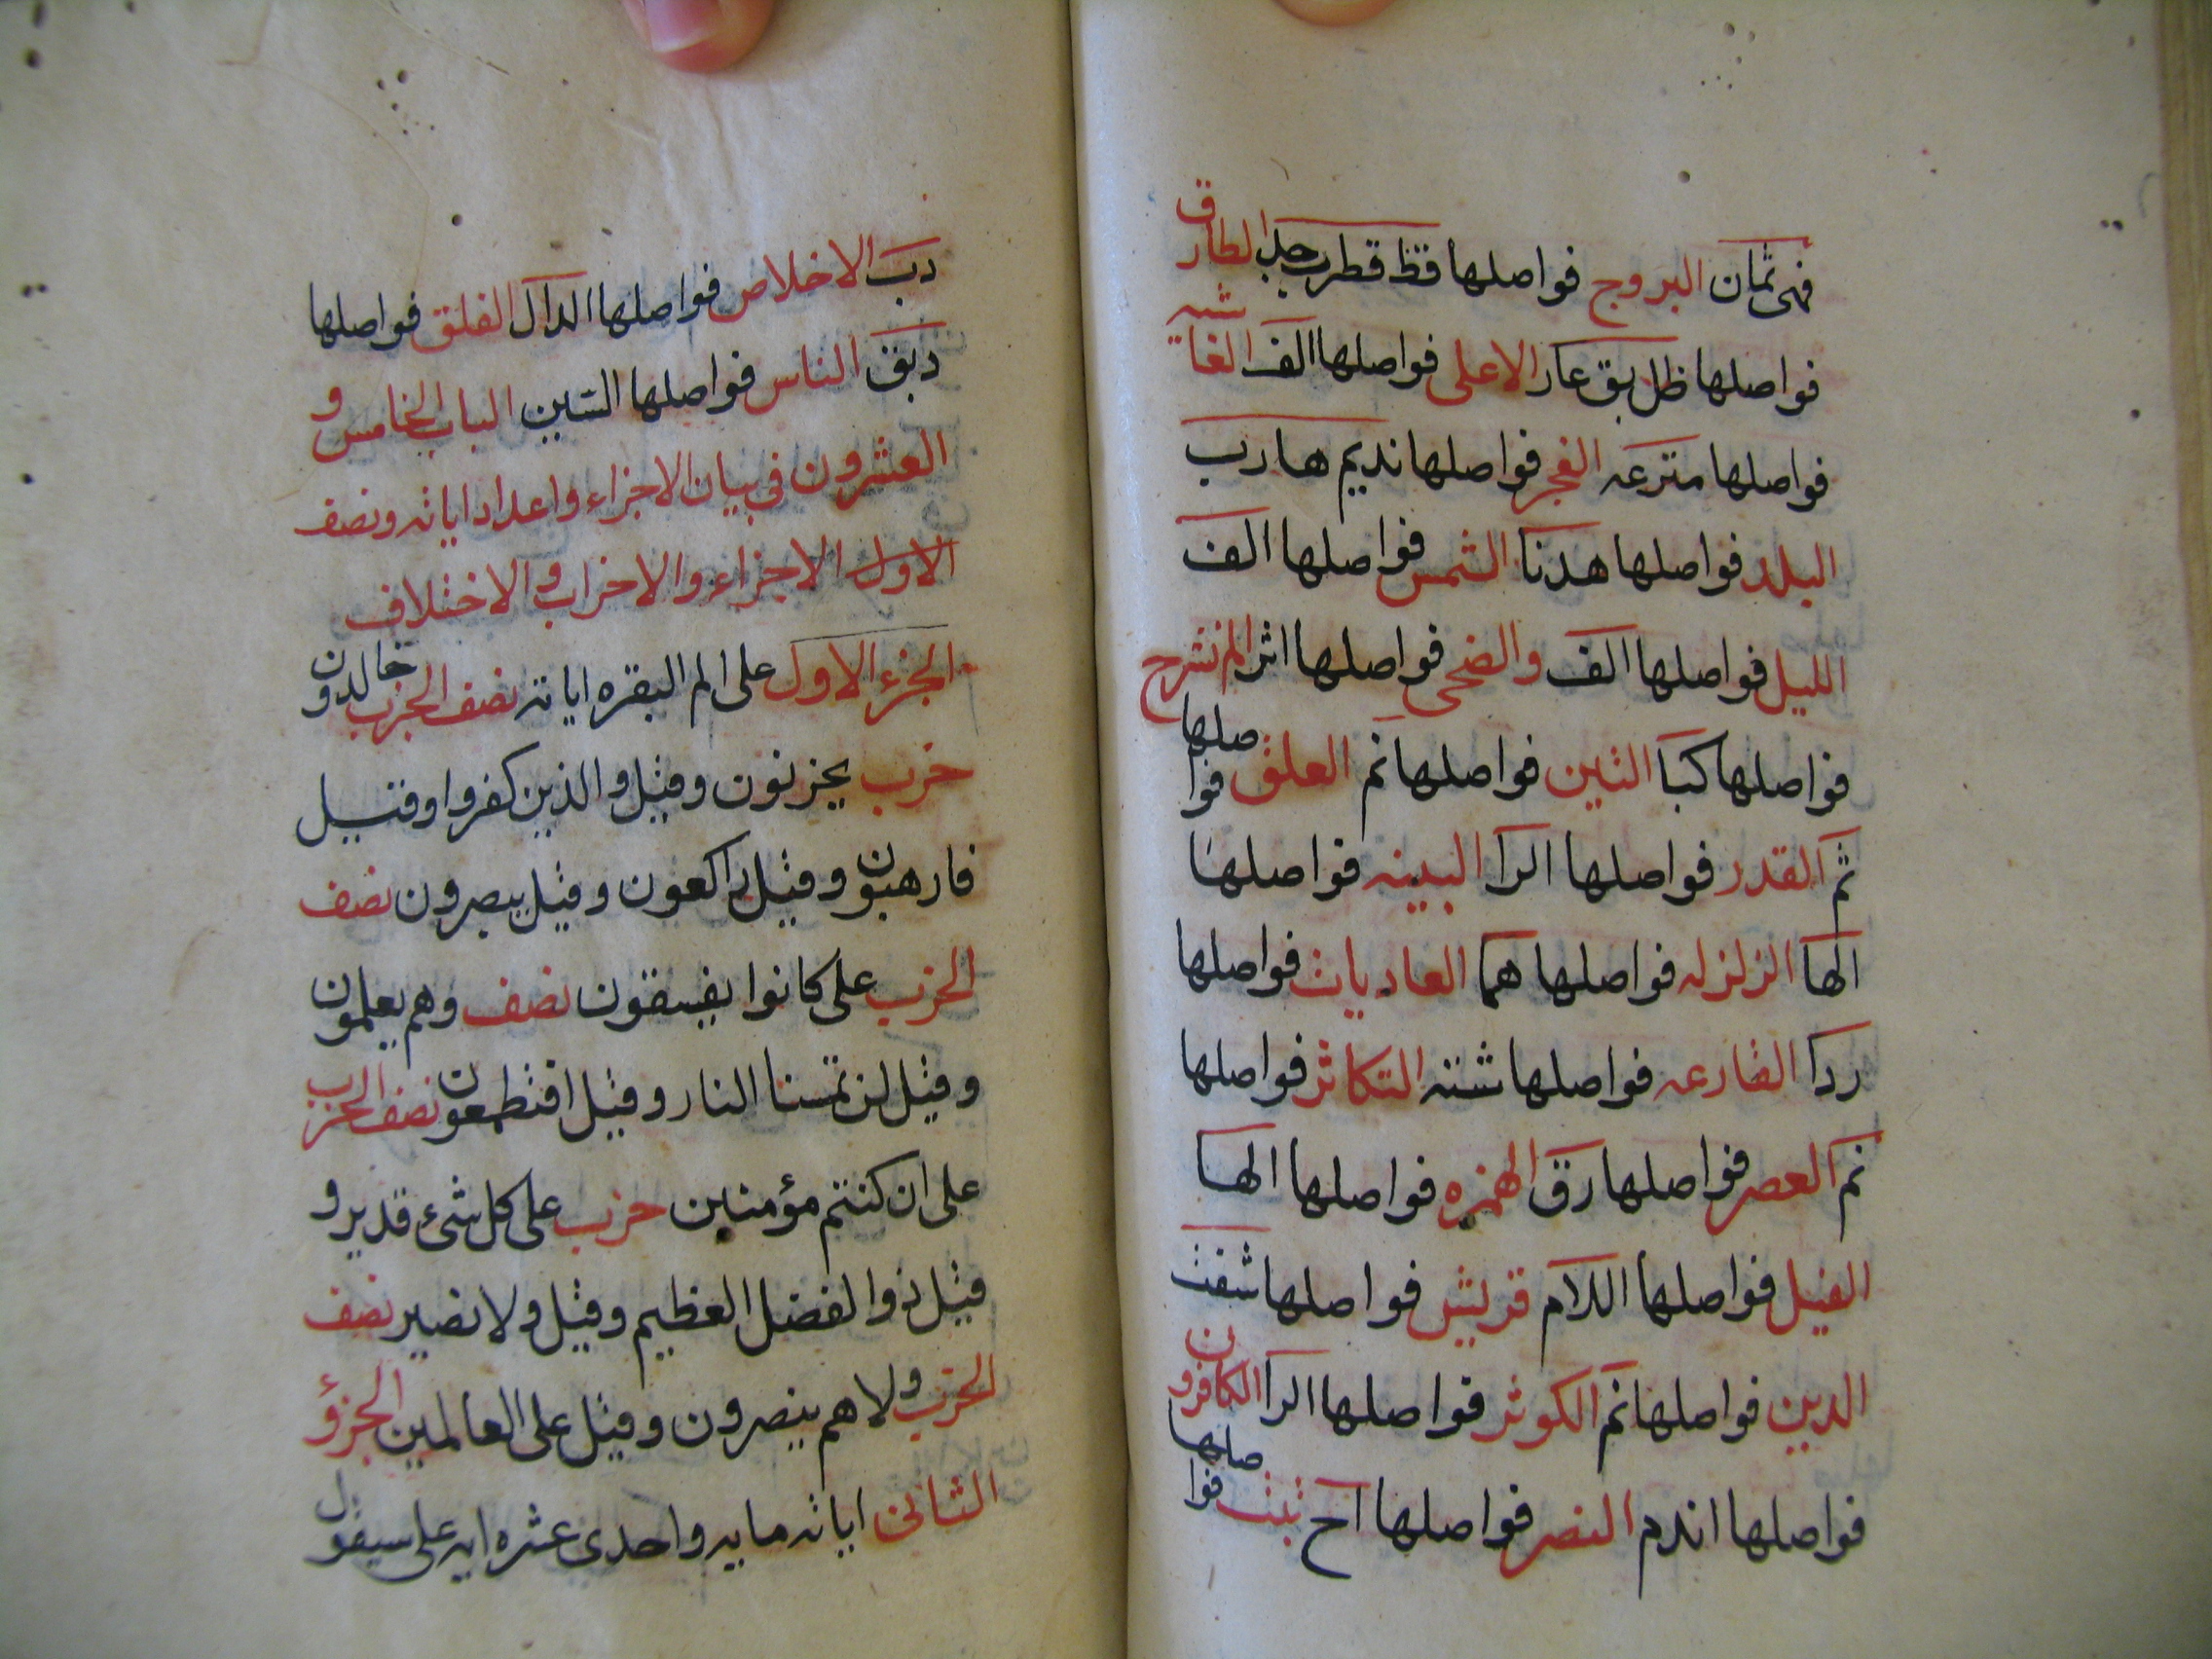 فهى ثمان البروج فواصلها قظ قطرب جد الطارق
فواصلها ظل بق عار الاعلى فواصلها الف الغاشيه
فواصلها مترعه الفجر فواصلها نديم هارب
البلد فواصلها هدنا الشمس فواصلها الف
الليل فواصلها الف والضحى فواصلها اثر الم نشرح
فواصلها كبا التين فواصلها نم العلق فواصلها
ثم القدر فواصلها الرا البينه فواصلها
الها الزلزله فواصلها هما العاديات فواصلها
ردا القارعه فواصلها شته التكاثر فواصلها
نم العصر فواصلها رق الهمزه فواصلها الها
الفيل فواصلها اللام قريش فواصلها شفت
الدين فواصلها نم الكوثر فواصلها الرا الكافرون
فواصلها اندم النصر فواصلها اح تبت فواصلها
دب الاخلاص فواصلها الدال الفلق فواصلها
دبق الناس فواصلها السين الباب الخامس و
العشرون فى بيان الاجزاء واعداد اياته ونصف
الاول الاجزاء والاحزاب والاختلاف
الجزء الاول على الم البقره اياته نصف الحزب خالدون و
حزب يحزنون وقيل والذين كفروا وقيل
فارهبون وقيل راكعون وقيل يبصرون نصف
الحزب على كانوا يفسقون نصف وهم يعلمون
وقيل لن تمسنا النار وقيل افتطمعون نصف الحزب
على ان كنتم مؤمنين حزب على كل شىء قدير و
قيل ذوالفضل العظيم وقيل ولا نصير نصف
الحزب ولا هم ينصرون وقيل على العالمين الجزؤ
الثانى اياته مايه واحدى عشره ايه على سيقول